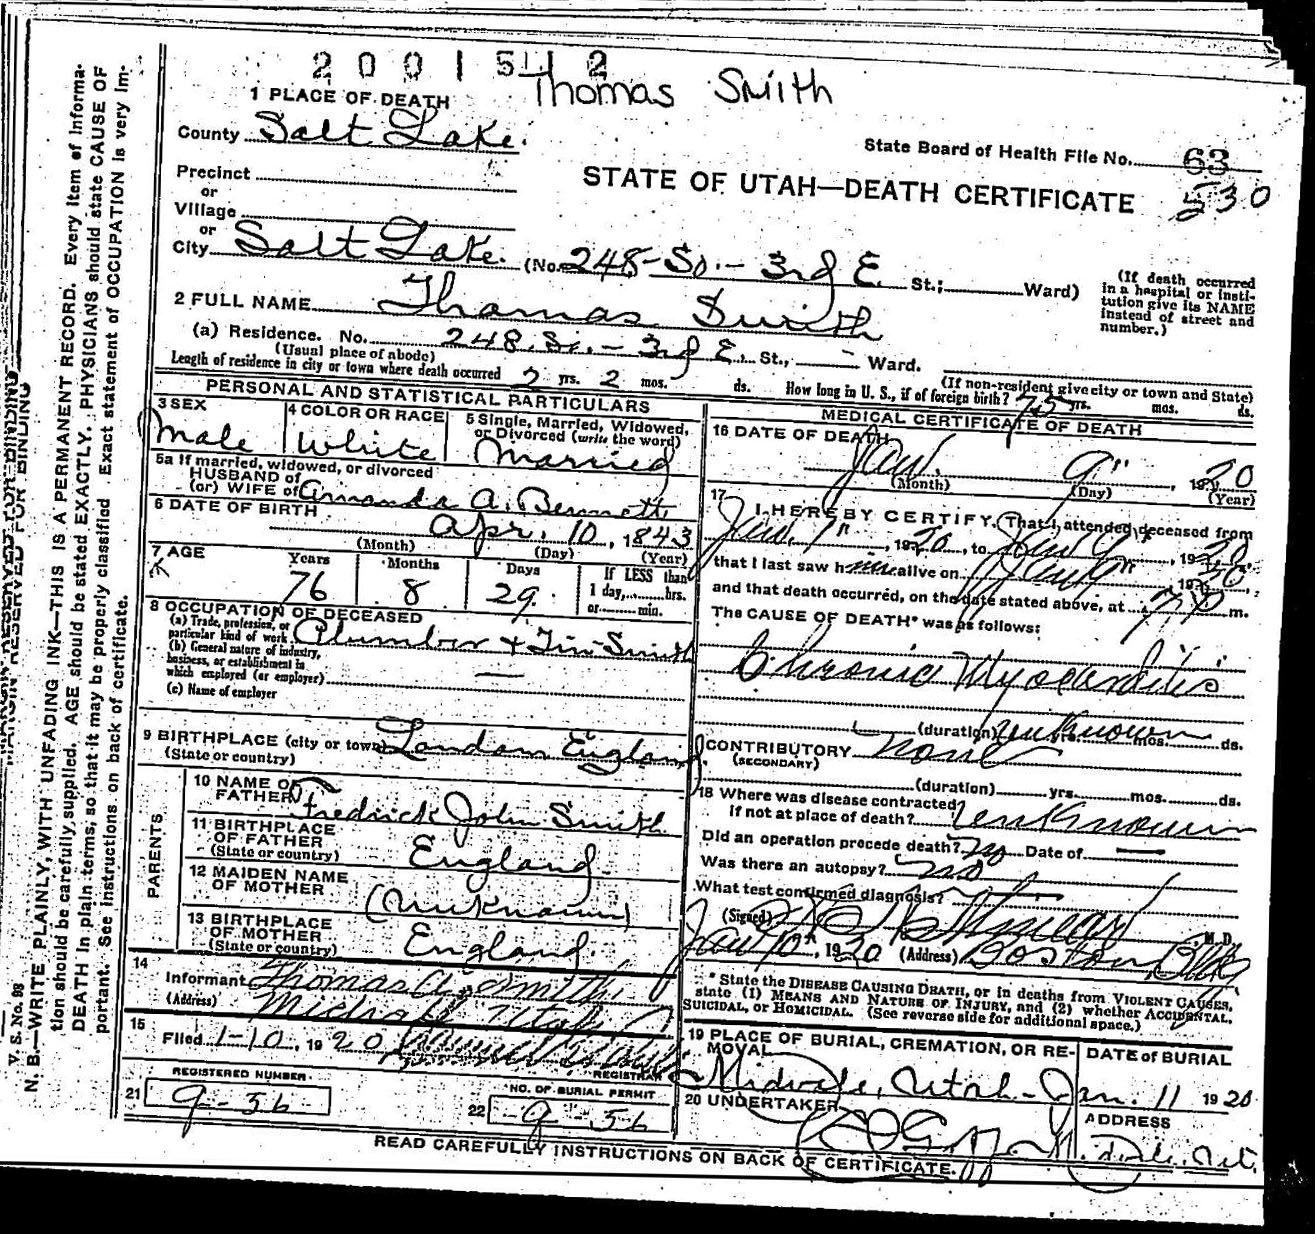 2001512
Thomas Smith
1 PLACE OF DEATH
County Salt Lake.
State Board of Health File No. 63
530
STATE OF UTAH—DEATH CERTIFICATE
Precinct
or
Village
or
City Salt Lake. (No. 248-So.- 3rd E. St.; Ward)
(If death occurred in a hospital or institution give its NAME instead of street and number.)
2 FULL NAME Thomas Smith
(a) Residence. No. 248. So.- 3rd E. St., - Ward.
(Usual place of abode)
(If non-resident give city or town and State)
Length of residence in city or town where death occurred 2 yrs. 2 mos. ds. How long in U. S., if of foreign birth? 75 yrs. mos. ds.
PERSONAL AND STATISTICAL PARTICULARS
3 SEX
Male
4 COLOR OR RACE
White
5 Single, Married, Widowed, or Divorced (write the word)
Married
5a If married, widowed, or divorced
HUSBAND of
(or) WIFE of Amanda A. Bennett
6 DATE OF BIRTH Apr. 10, 1843
(Month) (Day) (Year)
7 AGE
Years Months Days If LESS than
76 8 29. 1 day, hrs.
or min.
8 OCCUPATION OF DECEASED
(a) Trade, profession, or particular kind of work Plumber + Tin Smith
(b) General nature of industry, business, or establishment in which employed (or employer) —
(c) Name of employer
9 BIRTHPLACE (city or town) London England
(State or country)
PARENTS
10 NAME OF FATHER Fredrick John Smith
11 BIRTHPLACE OF FATHER England
(State or country)
12 MAIDEN NAME OF MOTHER (Unknown)
13 BIRTHPLACE OF MOTHER England.
(State or country)
14
Informant Thomas A. Smith
(Address) Midvale Utah
15
Filed 1-10, 1920
REGISTRAR
REGISTERED NUMBER
21 9-36
NO. OF BURIAL PERMIT
22 9-56
MEDICAL CERTIFICATE OF DEATH
16 DATE OF DEATH
Jan. 9" 1920
(Month) (Day) (Year)
17
I HEREBY CERTIFY, That I attended deceased from
Jan. 7", 1920, to Jan 9", 1920
that I last saw him alive on Jan 9", 1920
and that death occurred, on the date stated above, at 7 P m.
The CAUSE OF DEATH* was as follows:
Chronic Myocarditis
(duration) unknown mos. ds.
CONTRIBUTORY none
(SECONDARY)
(duration) yrs. mos. ds.
18 Where was disease contracted
if not at place of death? unknown
Did an operation precede death? no Date of —
Was there an autopsy? no
What test confirmed diagnosis? —
(Signed) M. D.
Jan 10th, 1920 (Address) Boston Bldg
*State the DISEASE CAUSING DEATH, or in deaths from VIOLENT CAUSES, state (1) MEANS AND NATURE OF INJURY, and (2) whether ACCIDENTAL, SUICIDAL, or HOMICIDAL. (See reverse side for additional space.)
19 PLACE OF BURIAL, CREMATION, OR REMOVAL
Midvale, Utah
DATE of BURIAL
Jan. 11 1920
20 UNDERTAKER
ADDRESS
READ CAREFULLY INSTRUCTIONS ON BACK OF CERTIFICATE.
V. S. No. 98
MARGIN RESERVED FOR BINDING
N. B.—WRITE PLAINLY, WITH UNFADING INK—THIS IS A PERMANENT RECORD. Every item of information should be carefully supplied. AGE should be stated EXACTLY. PHYSICIANS should state CAUSE OF DEATH in plain terms, so that it may be properly classified. Exact statement of OCCUPATION is very important. See instructions on back of certificate.